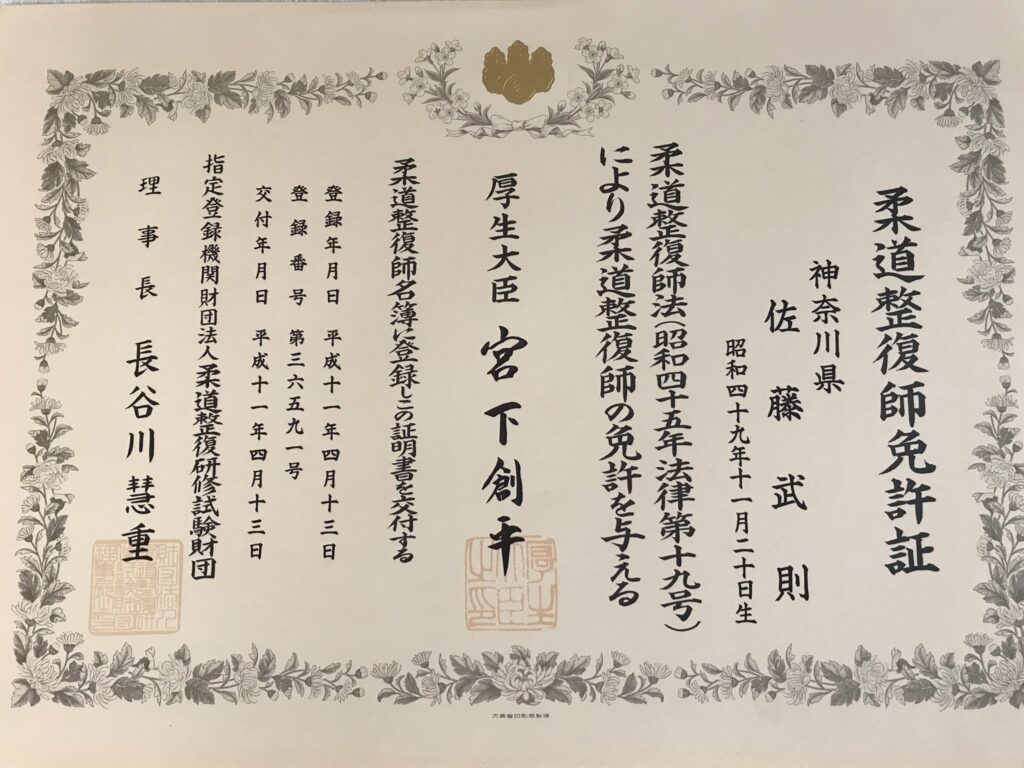 柔道整復師免許証
神奈川県
佐藤武則
昭和四十九年十一月二十日生
柔道整復師法(昭和四十五年法律第十九号)
により柔道整復師の免許を与える
厚生大臣 宮下創平
柔道整復師名簿に登録しこの証明書を交付する
登録年月日 平成十一年四月十三日
登録番号 第三六五九一号
交付年月日 平成十一年四月十三日
指定登録機関財団法人柔道整復研修試験財団
理事長 長谷川慧重
大蔵省印刷局製造